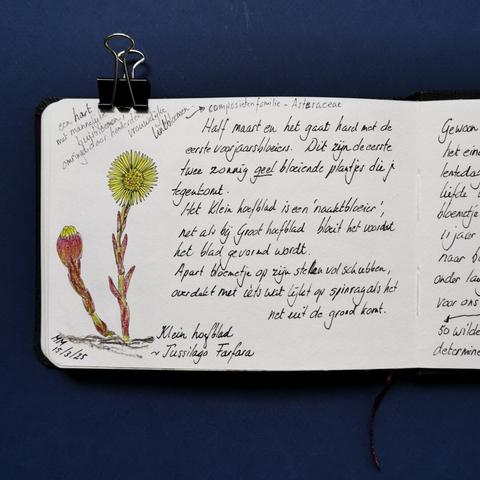 een hart
met mannelijke
buisbloemen
omringd door honderden
vrouwelijke
lintbloemen
composietenfamilie - Asteraceae
Half maart en het gaat hard met de
eerste voorjaarsbloeiers. Dit zijn de eerste
twee zonnig geel bloeiende plantjes die j
tegenkomt.
Het Klein hoefblad is een 'naaktbloeier',
net als bij Groot hoefblad bloeit het voordat
het blad gevormd wordt.
Apart bloemetje op zijn stelen vol schubben,
overdekt met iets wat lijkt op spinrag als het
net uit de grond komt.
Klein hoefblad
~ Tussilago Farfara
MM
15/3/25
Gewoon
het eind
lentedaa
liefde
bloemetje
11 jaar
naar b
onder la
voor ons
so wilde
determine